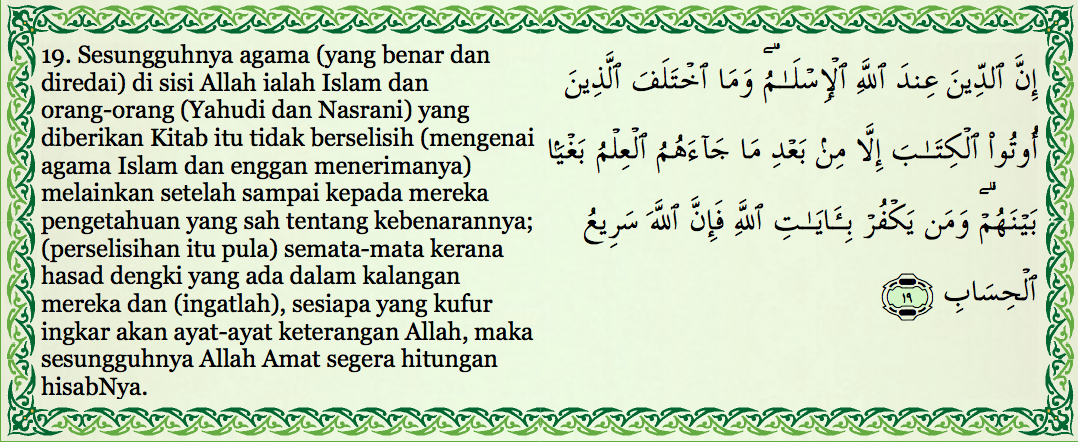 19. Sesungguhnya agama (yang benar dan
diredai) di sisi Allah ialah Islam dan
orang-orang (Yahudi dan Nasrani) yang
diberikan Kitab itu tidak berselisih (mengenai
agama Islam dan enggan menerimanya)
melainkan setelah sampai kepada mereka
pengetahuan yang sah tentang kebenarannya;
(perselisihan itu pula) semata-mata kerana
hasad dengki yang ada dalam kalangan
mereka dan (ingatlah), sesiapa yang kufur
ingkar akan ayat-ayat keterangan Allah, maka
sesungguhnya Allah Amat segera hitungan
hisabNya.
إِنَّ ٱلدِّينَ عِندَ ٱللَّهِ ٱلْإِسْلَـٰمُ ۗ وَمَا ٱخْتَلَفَ ٱلَّذِينَ
أُوتُوا۟ ٱلْكِتَـٰبَ إِلَّا مِنۢ بَعْدِ مَا جَآءَهُمُ ٱلْعِلْمُ بَغْيًۢا
بَيْنَهُمْ ۗ وَمَن يَكْفُرْ بِـَٔايَـٰتِ ٱللَّهِ فَإِنَّ ٱللَّهَ سَرِيعُ
ٱلْحِسَابِ ١٩